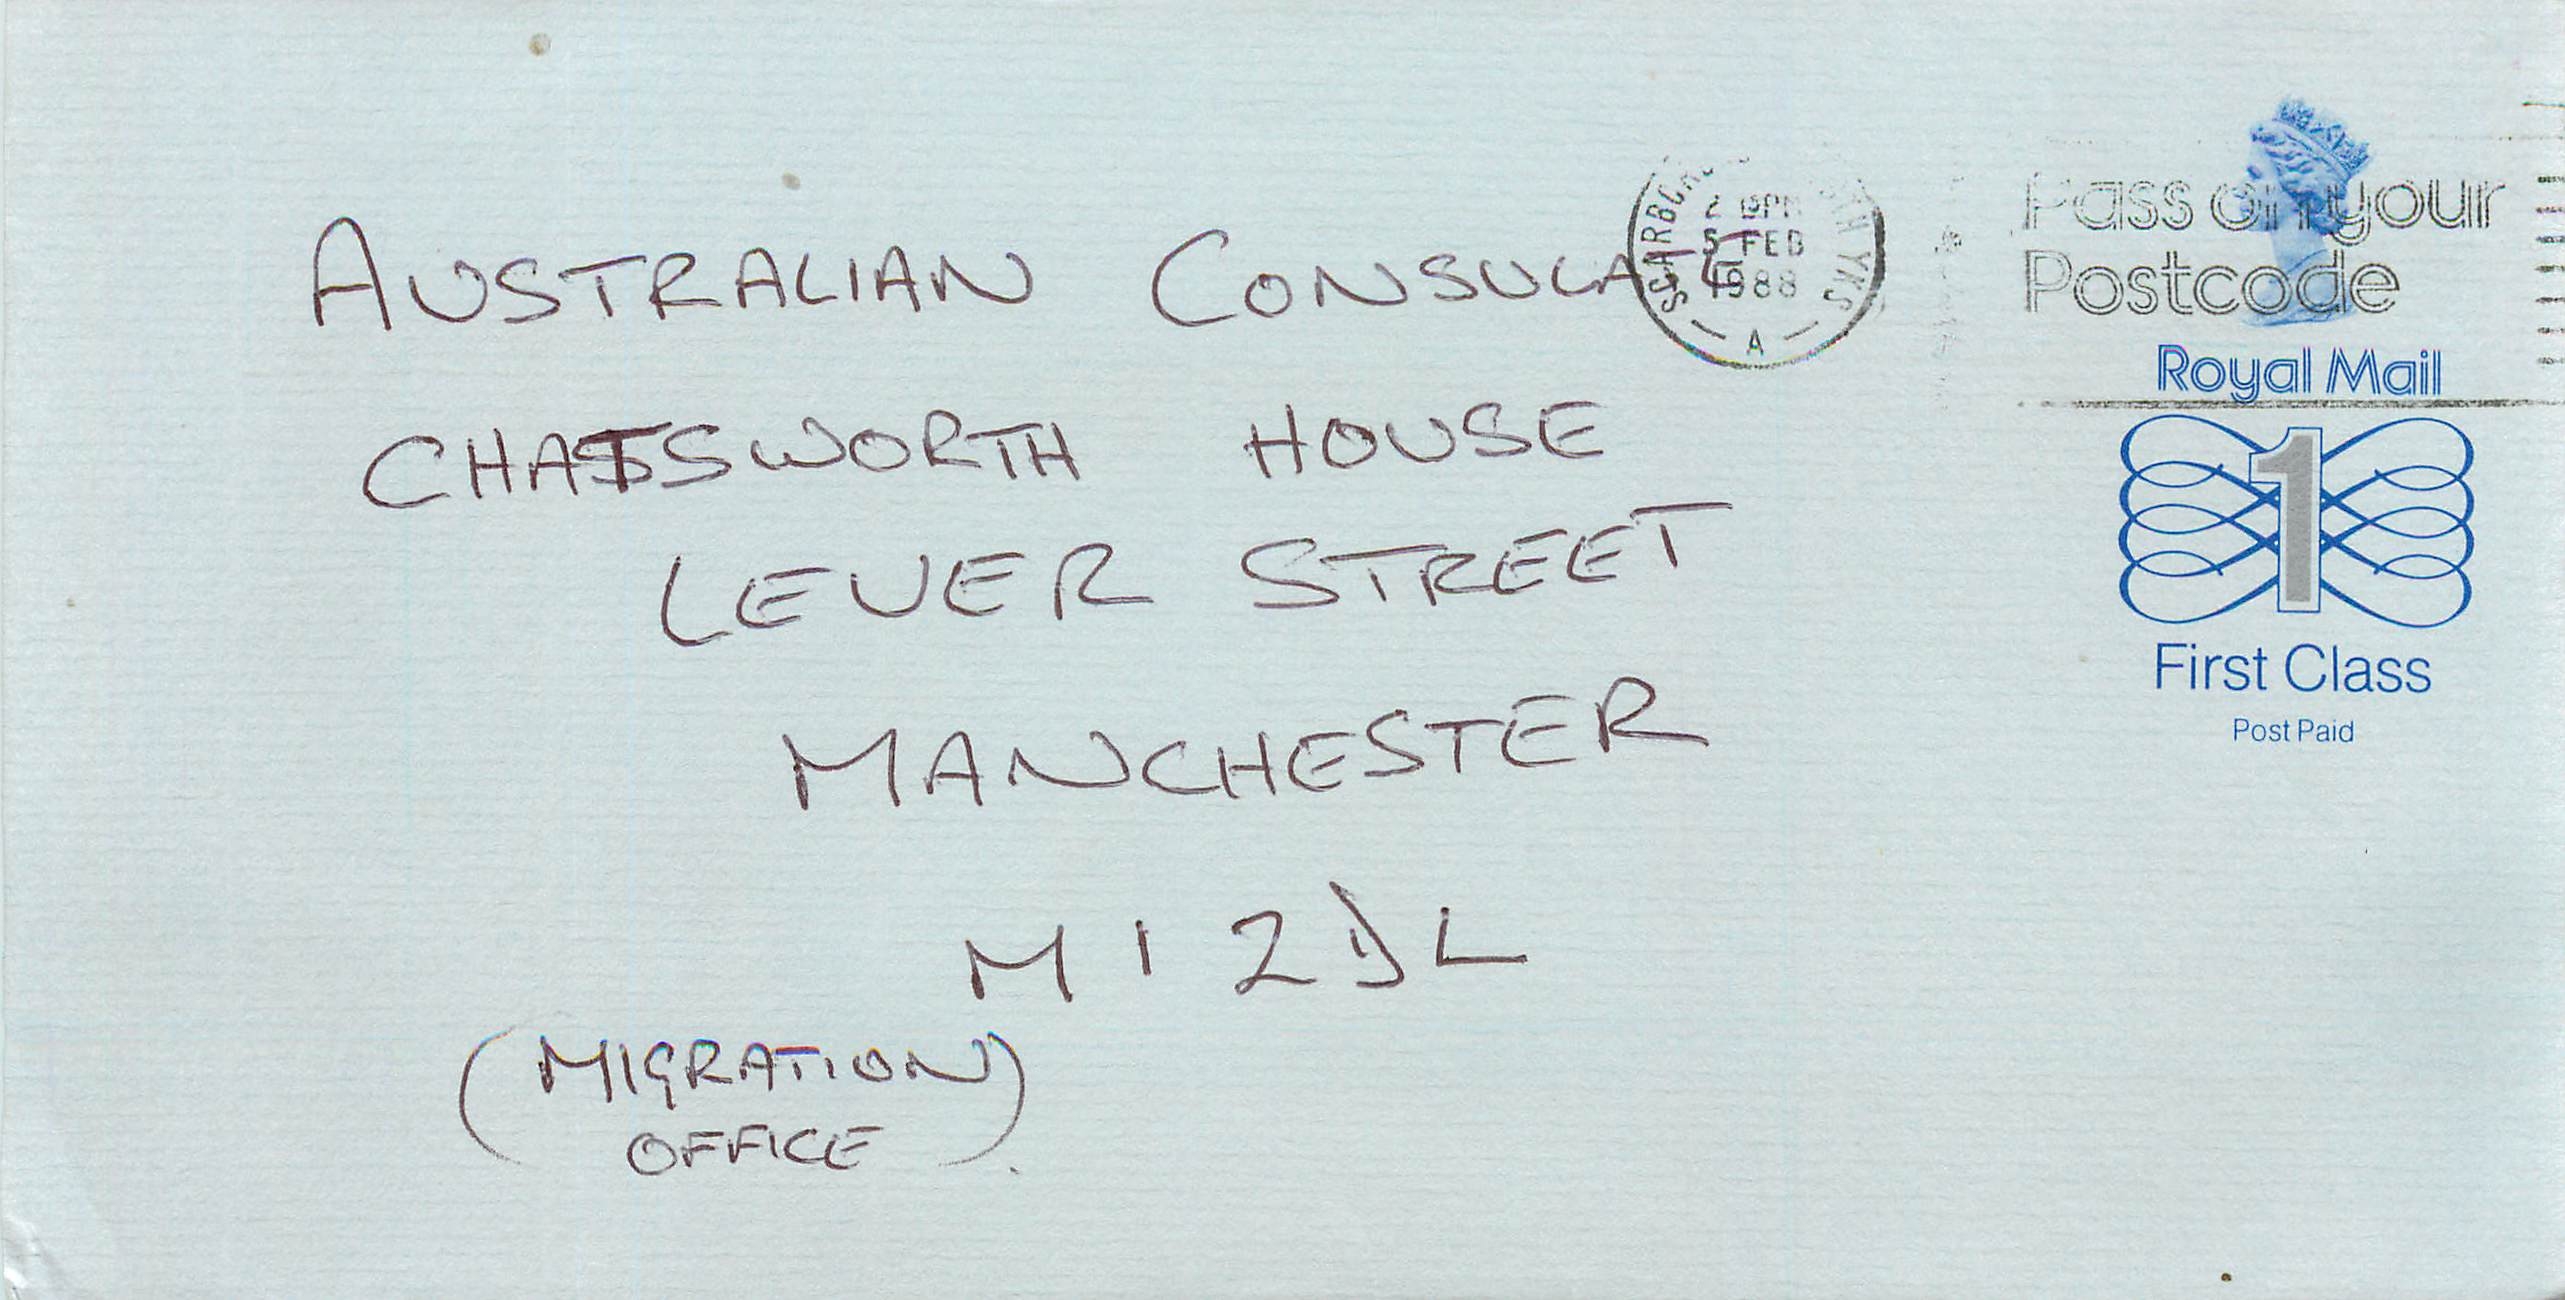 AUSTRALIAN CONSULATE
CHATSWORTH HOUSE
LEVER STREET
MANCHESTER
M1 2DL
(MIGRATION
OFFICE)
5 FEB
1988
YKS
A
Pass on your
Postcode
Royal Mail
1
First Class
Post Paid